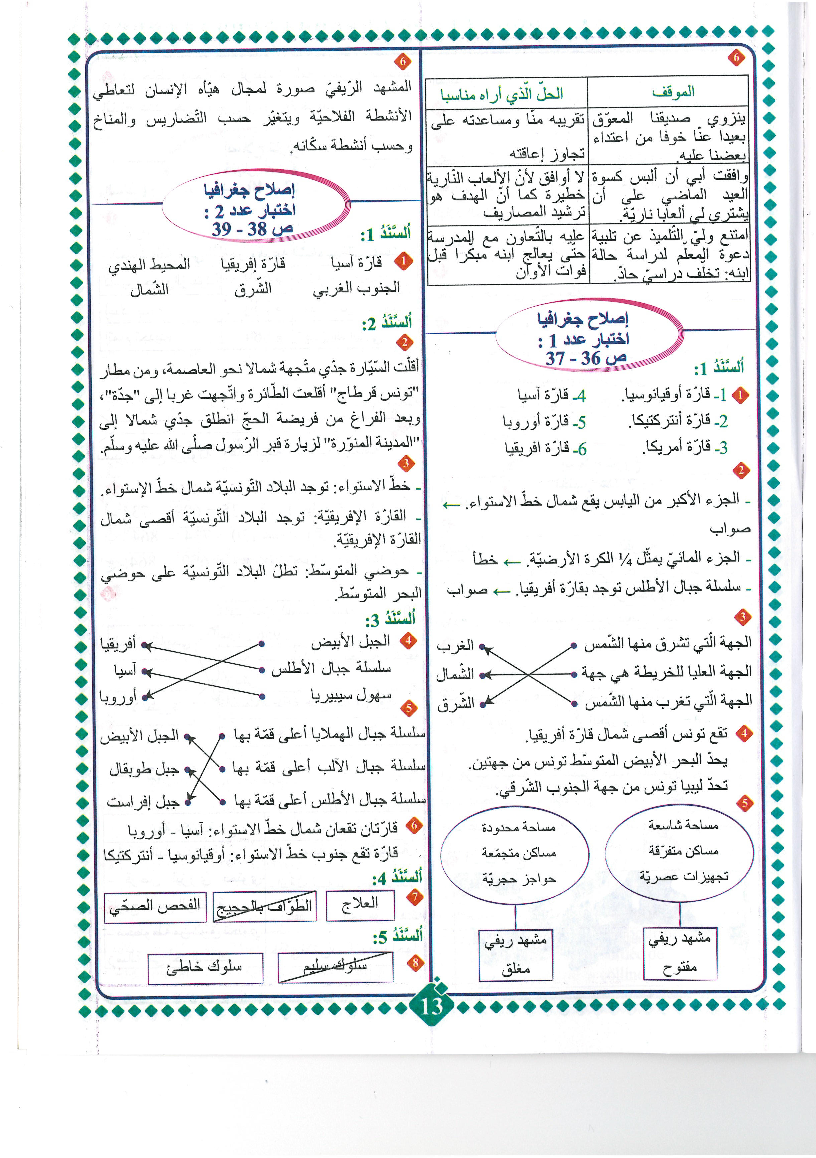 6
الموقف
الحلّ الّذي أراه مناسبا
ينزوي صديقنا المعوّق
بعيدا عنّا خوفا من اعتداء
بعضنا عليه.
تقريبه منّا ومساعدته على
تجاوز إعاقته
وافقت أبي أن ألبس كسوة
العيد الماضي على أن
يشتري لي ألعابا ناريّة.
لا أوافق لأنّ الألعاب النّارية
خطيرة كما أنّ الهدف هو
ترشيد المصاريف
امتنع وليّ التّلميذ عن تلبية
دعوة المعلّم لدراسة حالة
ابنه: تخلف دراسيّ حادّ.
عليه بالتّعاون مع المدرسة
حتى يعالج ابنه مبكرا قبل
فوات الأوان
إصلاح جغرافيا
اختبار عدد 1 :
ص 36 - 37
ألسَّنَدُ 1:
1 1ـ قارّة أوقيانوسيا. 4ـ قارّة آسيا
2ـ قارّة أنتركتيكا. 5ـ قارّة أوروبا
3ـ قارّة أمريكا. 6ـ قارّة افريقيا
2
ـ الجزء الأكبر من اليابس يقع شمال خطّ الاستواء. ←
صواب
ـ الجزء المائيّ يمثّل ¼ الكرة الأرضيّة. ← خطأ
ـ سلسلة جبال الأطلس توجد بقارّة أفريقيا. ← صواب
3
الجهة الّتي تشرق منها الشّمس الغرب
الجهة العليا للخريطة هي جهة الشّمال
الجهة الّتي تغرب منها الشّمس الشّرق
4 تقع تونس أقصى شمال قارّة أفريقيا.
يحدّ البحر الأبيض المتوسّط تونس من جهتين.
تحدّ ليبيا تونس من جهة الجنوب الشّرقي.
5
مساحة شاسعة
مساكن متفرّقة
تجهيزات عصريّة
مشهد ريفي
مفتوح
مساحة محدودة
مساكن متجمّعة
حواجز حجريّة
مشهد ريفي
مغلق
6
المشهد الرّيفيّ صورة لمجال هيّأه الإنسان لتعاطي
الأنشطة الفلاحيّة ويتغيّر حسب التّضاريس والمناخ
وحسب أنشطة سكّانه.
إصلاح جغرافيا
اختبار عدد 2 :
ص 38 - 39
ألسَّنَدُ 1:
1 قارّة آسيا قارّة إفريقيا المحيط الهندي
الجنوب الغربي الشّرق الشّمال
ألسَّنَدُ 2:
2
أقلّت السّيّارة جدّي متّجهة شمالا نحو العاصمة، ومن مطار
"تونس قرطاج" أقلعت الطّائرة واتّجهت غربا إلى "جدّة"،
وبعد الفراغ من فريضة الحجّ انطلق جدّي شمالا إلى
"المدينة المنوّرة" لزيارة قبر الرّسول صلّى الله عليه وسلّم.
3
ـ خطّ الاستواء: توجد البلاد التّونسيّة شمال خطّ الإستواء.
ـ القارّة الإفريقيّة: توجد البلاد التّونسيّة أقصى شمال
القارّة الإفريقيّة.
ـ حوضي المتوسّط: تطلّ البلاد التّونسيّة على حوضي
البحر المتوسّط.
ألسَّنَدُ 3:
4 الجبل الأبيض أفريقيا
سلسلة جبال الأطلس آسيا
سهول سيبيريا أوروبا
5
سلسلة جبال الهملايا أعلى قمّة بها الجبل الأبيض
سلسلة جبال الألب أعلى قمّة بها جبل طوبقال
سلسلة جبال الأطلس أعلى قمّة بها جبل إفراست
6 قارّتان تقعان شمال خطّ الاستواء: آسيا - أوروبا
قارّة تقع جنوب خطّ الاستواء: أوقيانوسيا - أنتركتيكا
ألسَّنَدُ 4:
7 العلاج الطّوّاف بالحجيج الفحص الصّحّي
ألسَّنَدُ 5:
8 سلوك سليم سلوك خاطئ
13